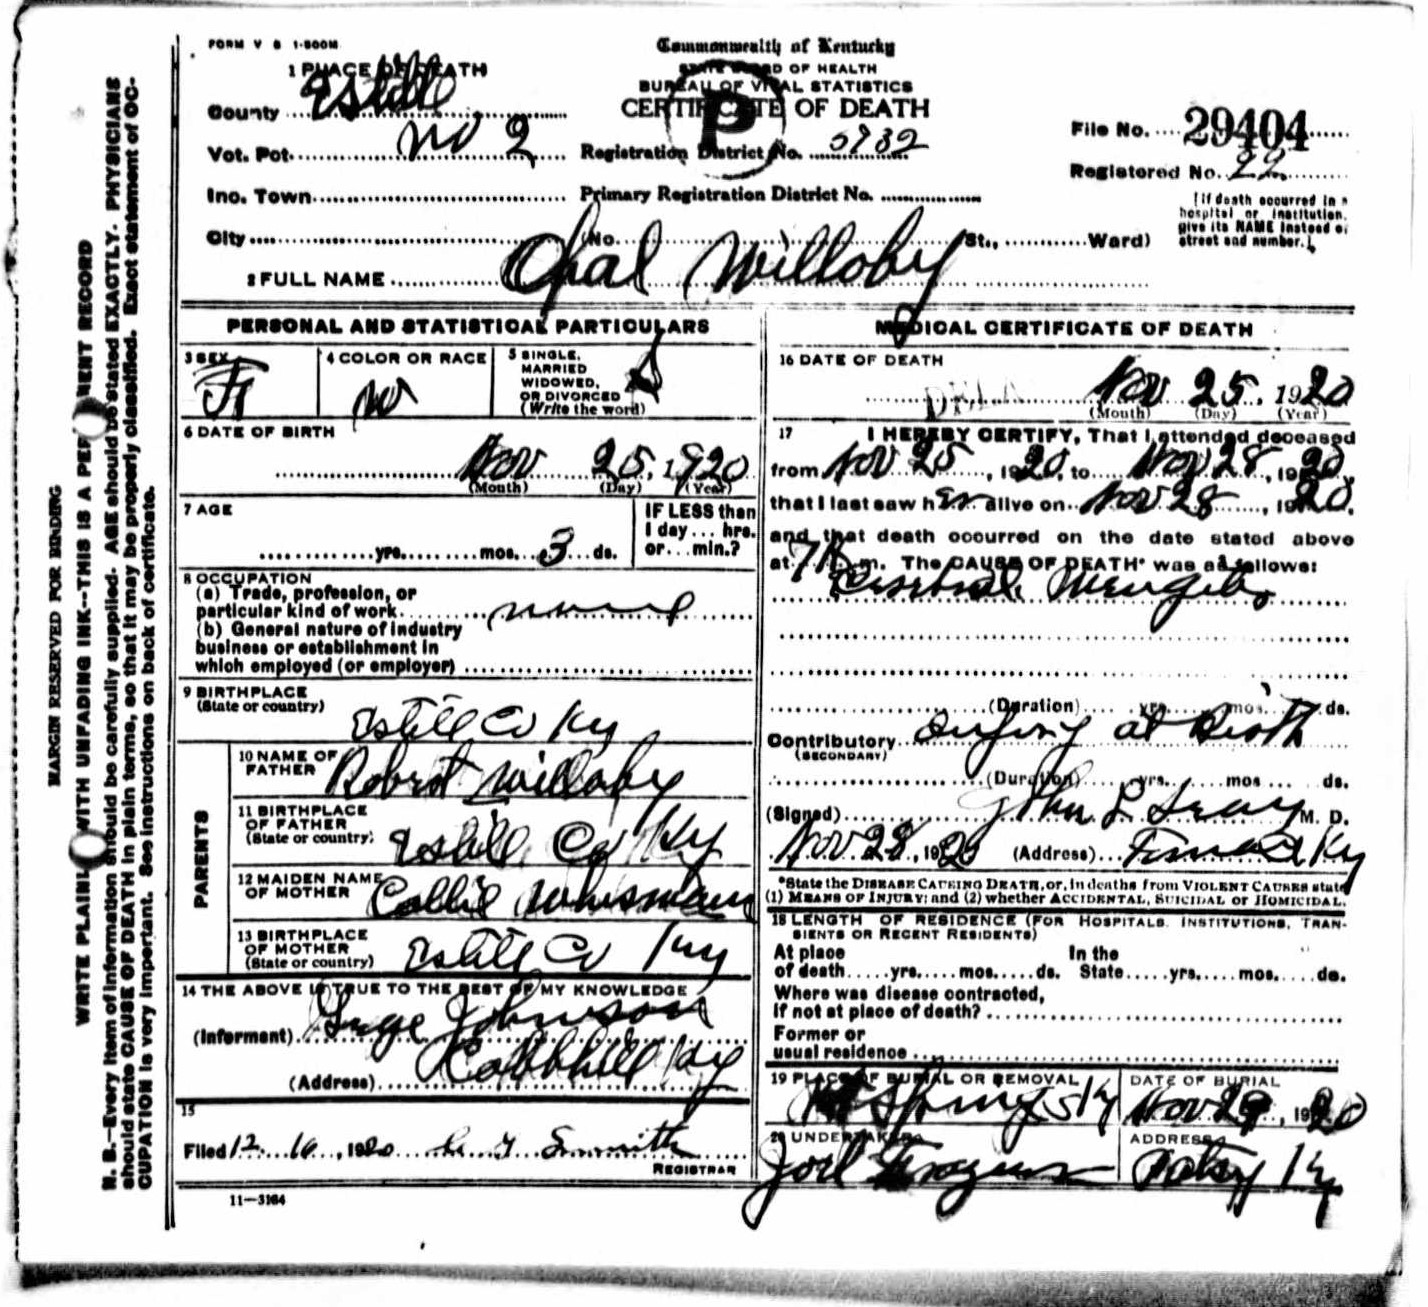 FORM V S 1-500M
Commonwealth of Kentucky
STATE BOARD OF HEALTH
BUREAU OF VITAL STATISTICS
CERTIFICATE OF DEATH
P
1 PLACE OF DEATH
County Estill
Vot. Pct. No 2
Registration District No. 5732
File No. 29404
Registered No. 22
Inc. Town
Primary Registration District No.
City (No. St., Ward)
[If death occurred in a
hospital or institution,
give its NAME instead of
street and number.]
2 FULL NAME Opal Willoby
PERSONAL AND STATISTICAL PARTICULARS
3 SEX F
4 COLOR OR RACE W
5 SINGLE,
MARRIED
WIDOWED,
OR DIVORCED
(Write the word) S
6 DATE OF BIRTH
Nov 25, 1920
(Month) (Day) (Year)
7 AGE
yrs. mos. 3 ds.
IF LESS than
1 day ... hrs.
or ... min.?
8 OCCUPATION
(a) Trade, profession, or
particular kind of work none
(b) General nature of industry
business or establishment in
which employed (or employer)
9 BIRTHPLACE
(State or country)
Estill Co Ky
PARENTS
10 NAME OF
FATHER Robert Willoby
11 BIRTHPLACE
OF FATHER
(State or country) Estill Co Ky
12 MAIDEN NAME
OF MOTHER Callie Whisman
13 BIRTHPLACE
OF MOTHER
(State or country) Estill Co Ky
14 THE ABOVE IS TRUE TO THE BEST OF MY KNOWLEDGE
(Informant) George Johnson
(Address) Cobbhill Ky
15
Filed 12 16, 1920 Smith
REGISTRAR
11—3164
MEDICAL CERTIFICATE OF DEATH
16 DATE OF DEATH
Nov 25, 1920
(Month) (Day) (Year)
17 I HEREBY CERTIFY, That I attended deceased
from Nov 25, 1920, to Nov 28, 1920,
that I last saw her alive on Nov 28, 1920,
and that death occurred on the date stated above
at 7 m. The CAUSE OF DEATH* was as follows:
(Duration) yrs. mos. ds.
Contributory at Birth
(SECONDARY)
(Duration) yrs. mos. ds.
(Signed) John M. D.
Nov 28, 1920 (Address) Ky
*State the DISEASE CAUSING DEATH, or, in deaths from VIOLENT CAUSES state
(1) MEANS OF INJURY; and (2) whether ACCIDENTAL, SUICIDAL or HOMICIDAL.
18 LENGTH OF RESIDENCE (FOR HOSPITALS, INSTITUTIONS, TRAN-
SIENTS OR RECENT RESIDENTS)
At place In the
of death yrs. mos. ds. State yrs. mos. ds.
Where was disease contracted,
If not at place of death?
Former or
usual residence
19 PLACE OF BURIAL OR REMOVAL
Springs Ky
DATE OF BURIAL
Nov 29, 1920
20 UNDERTAKER
Joel
ADDRESS
Patsy Ky
MARGIN RESERVED FOR BINDING
WRITE PLAINLY WITH UNFADING INK--THIS IS A PERMANENT RECORD
N. B.—Every item of information should be carefully supplied. AGE should be stated EXACTLY. PHYSICIANS
should state CAUSE OF DEATH in plain terms, so that it may be properly classified. Exact statement of OC-
CUPATION is very important. See instructions on back of certificate.